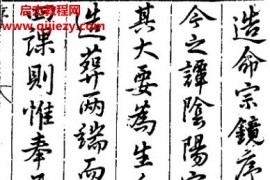 造命宗鏡序
今之譚陰陽家
其大要為生人
造葬兩端而
課則惟奉
启衣教程网
www.qiyizy.com